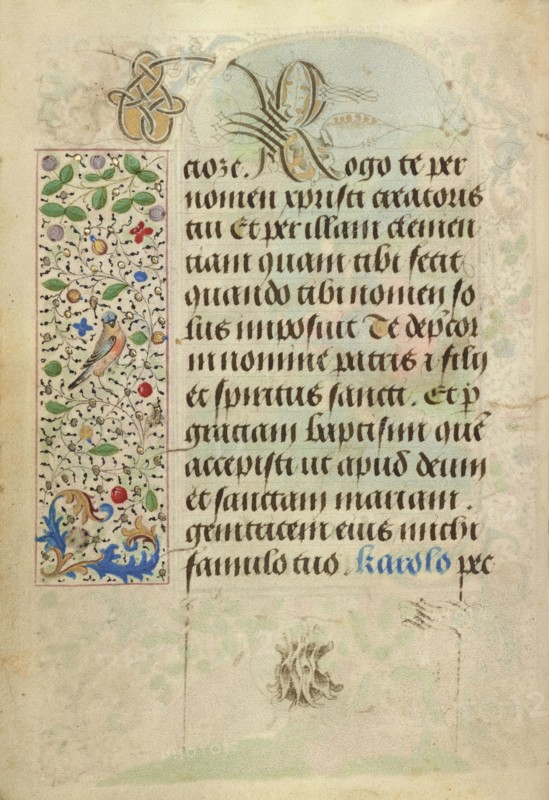 ctoze. Rogo te per
nomen xpristi creatoris
tui Et per illam clemen
tiam quam tibi fecit
quando tibi nomen so
lus imposuit Te dep̄cor
in nomine patris ⁊ filij
et spiritus sancti. Et p̄
gratiam baptismi quē
accepisti ut apud deum
et sanctam mariam.
genitricem eius michi
famulo tuo. karolo pec